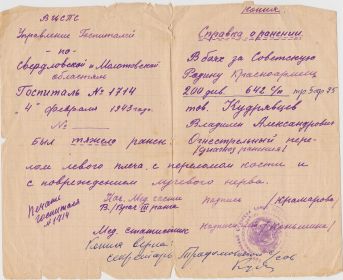 Копия.
ВЦСПС
Управление Госпиталей
- по -
Свердловской и Молотовской
областям
Госпиталь № 1714
"4" февраля 1943 года.
№
Справка о ранении.
В боях за Советскую
Родину Красноармеец
200 див 642 с/п
тов. Кудрявцев
Владимир Александрович
Был тяжело ранен. Огнестрельный пере-
(диагноз ранения)
лом левого плеча с переломом кости и
с повреждением лучевого нерва.
Печать
госпиталя
№ 1714
Нач. Мед. части подпись (Крамарова)
В./врач III ранга
Мед. статистик подпись
Копия верна:
секретарь